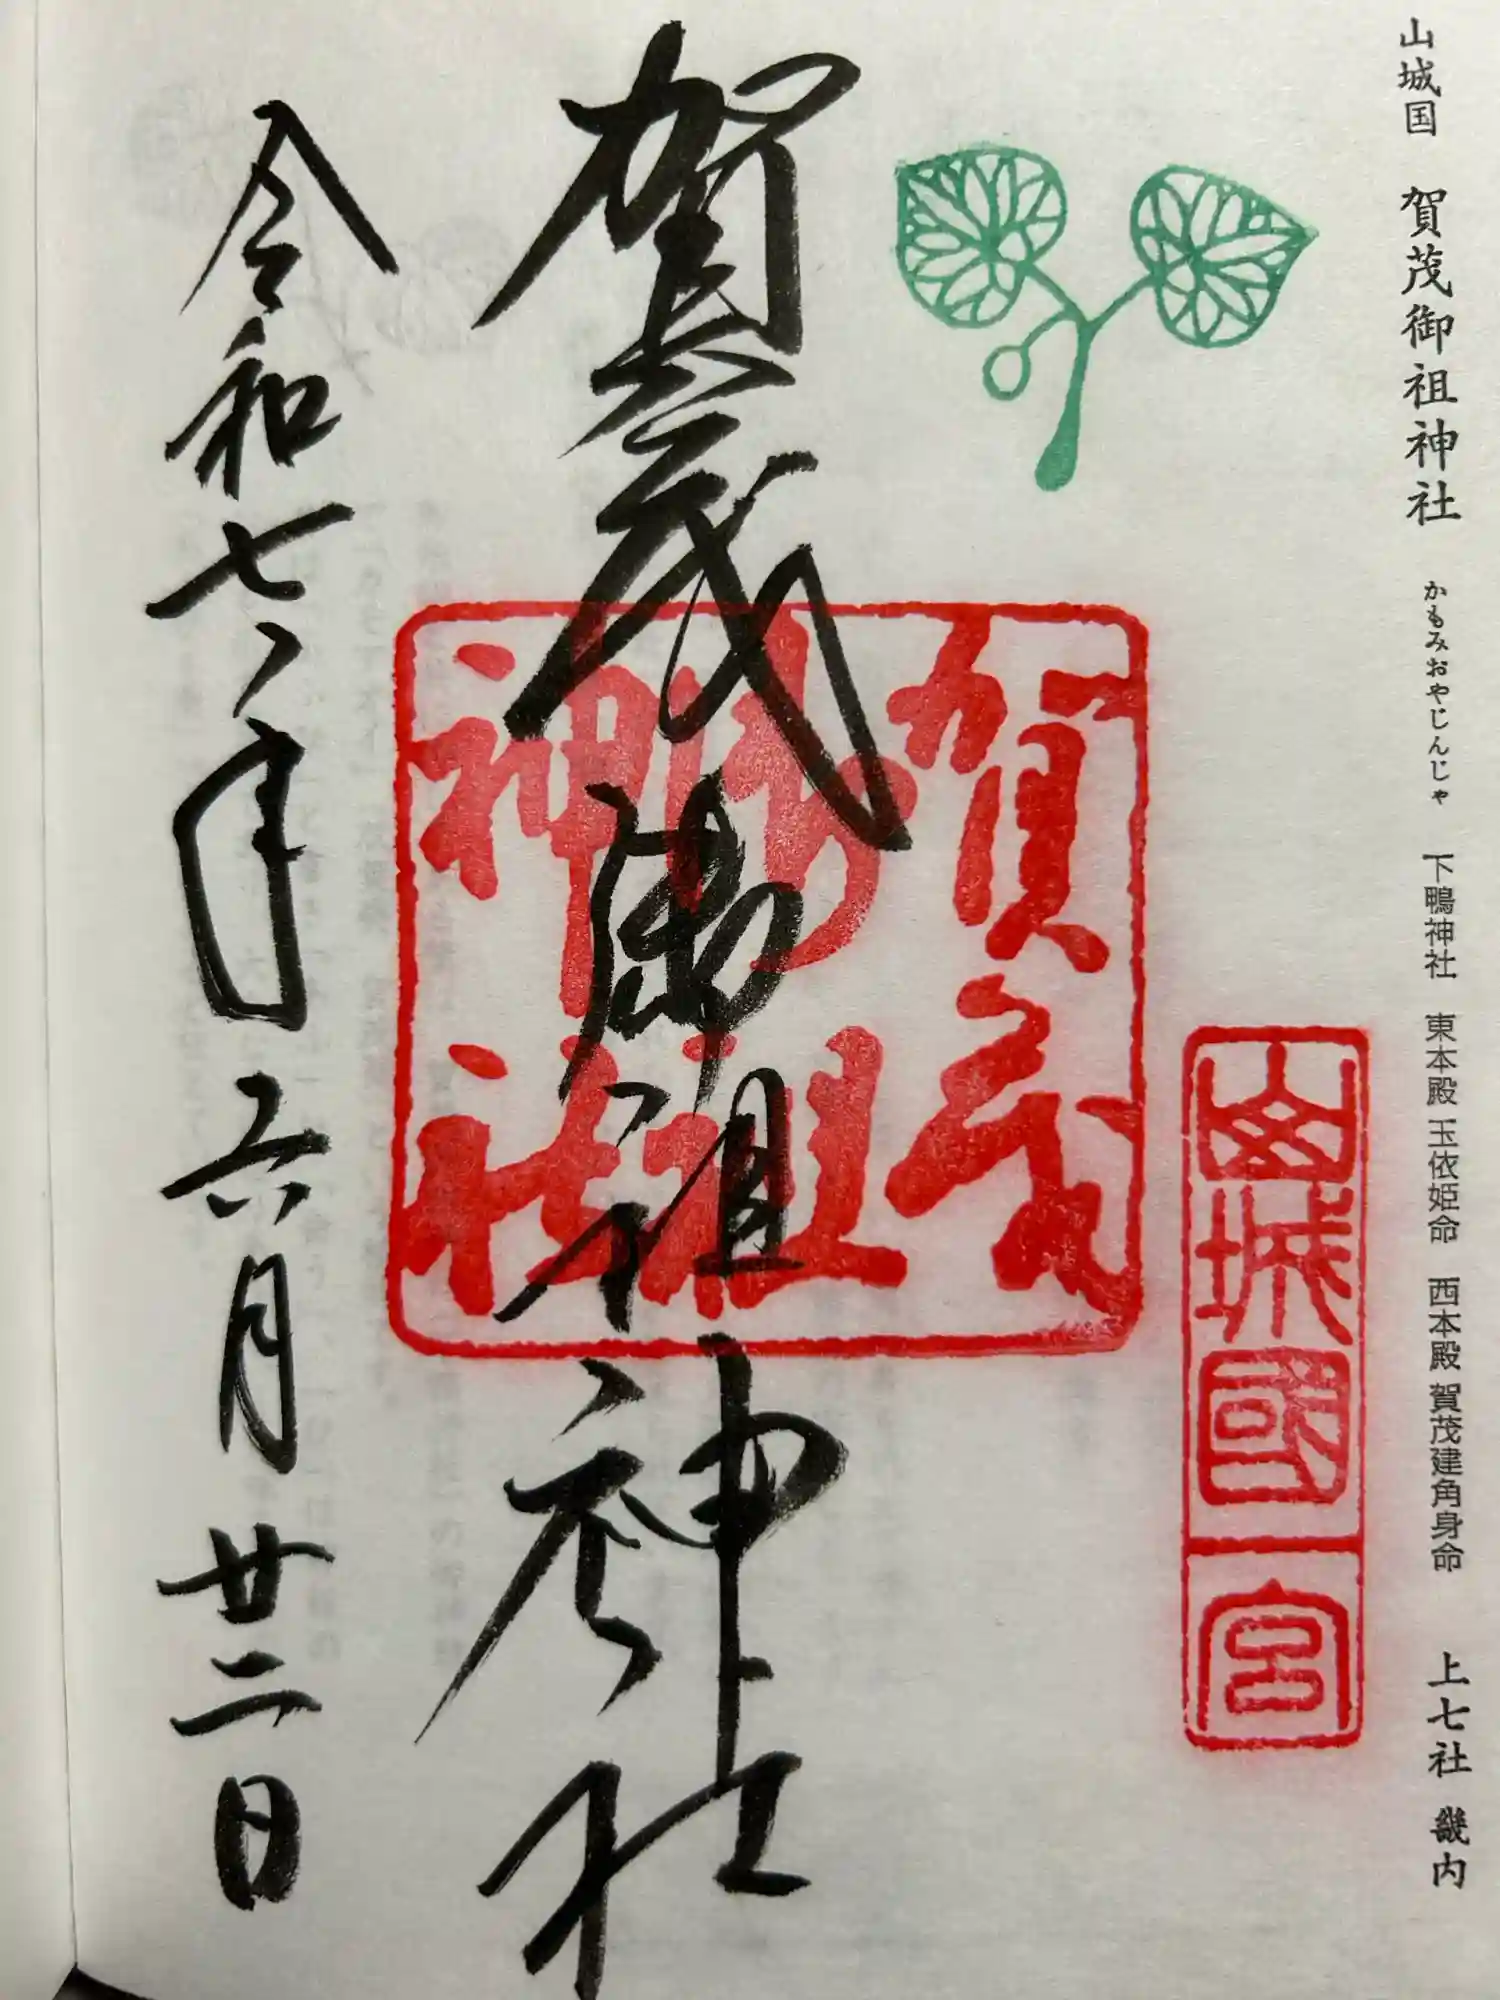 山城国 賀茂御祖神社 かもみおやじんじゃ 下鴨神社 東本殿 玉依姫命 西本殿 賀茂建角身命 上七社 畿内
山城國一宮
賀茂
御祖
神社
賀茂御祖神社
令和七年六月廿二日